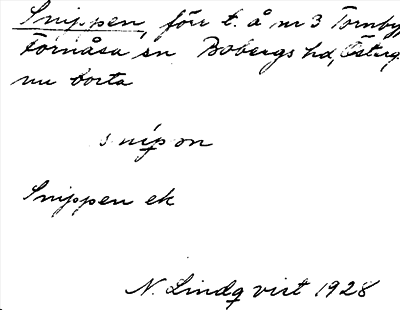 Snippen, förr t. å nr 3 Tornby,
Fornåsa sn Bobergs hd, Österg.
nu borta
snipon
Snippen ek
N. Lindqvist 1928